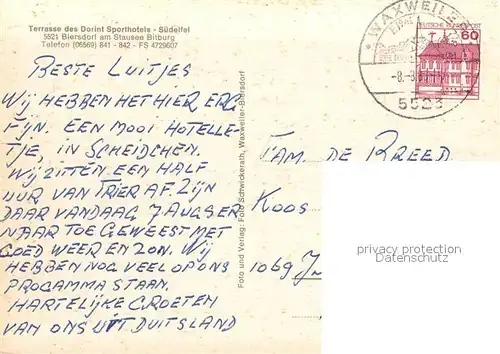 Terrasse des Dorint Sporthotels - Südeifel
5521 Biersdorf am Stausee Bitburg
Telefon (06569) 841 - 842 - FS 4729607
BESTE LUITJES
WIJ HEBBEN HET HIER ERG
FIJN. EEN MOOI HOTELLE-
TJE, IN SCHEIDCHEN.
WIJ ZITTEN EEN HALF
UUR VAN TRIER AF. ZIJN
DAAR VANDAAG 7 AUG
NAAR TOE GEWEEST MET
GOED WEER EN ZON. WIJ
HEBBEN NOG VEEL OP ONS
PROGAMMA STAAN.
HARTELIJKE GROETEN
VAN ONS UIT DUITSLAND
Foto und Verlag: Foto Schwickerath, Waxweiler-Biersdorf
WAXWEILER
5523
DEUTSCHE BUNDESPOST
60
FAM. DE BREED
KOOS
1069
privacy protection
www.delcampe.net